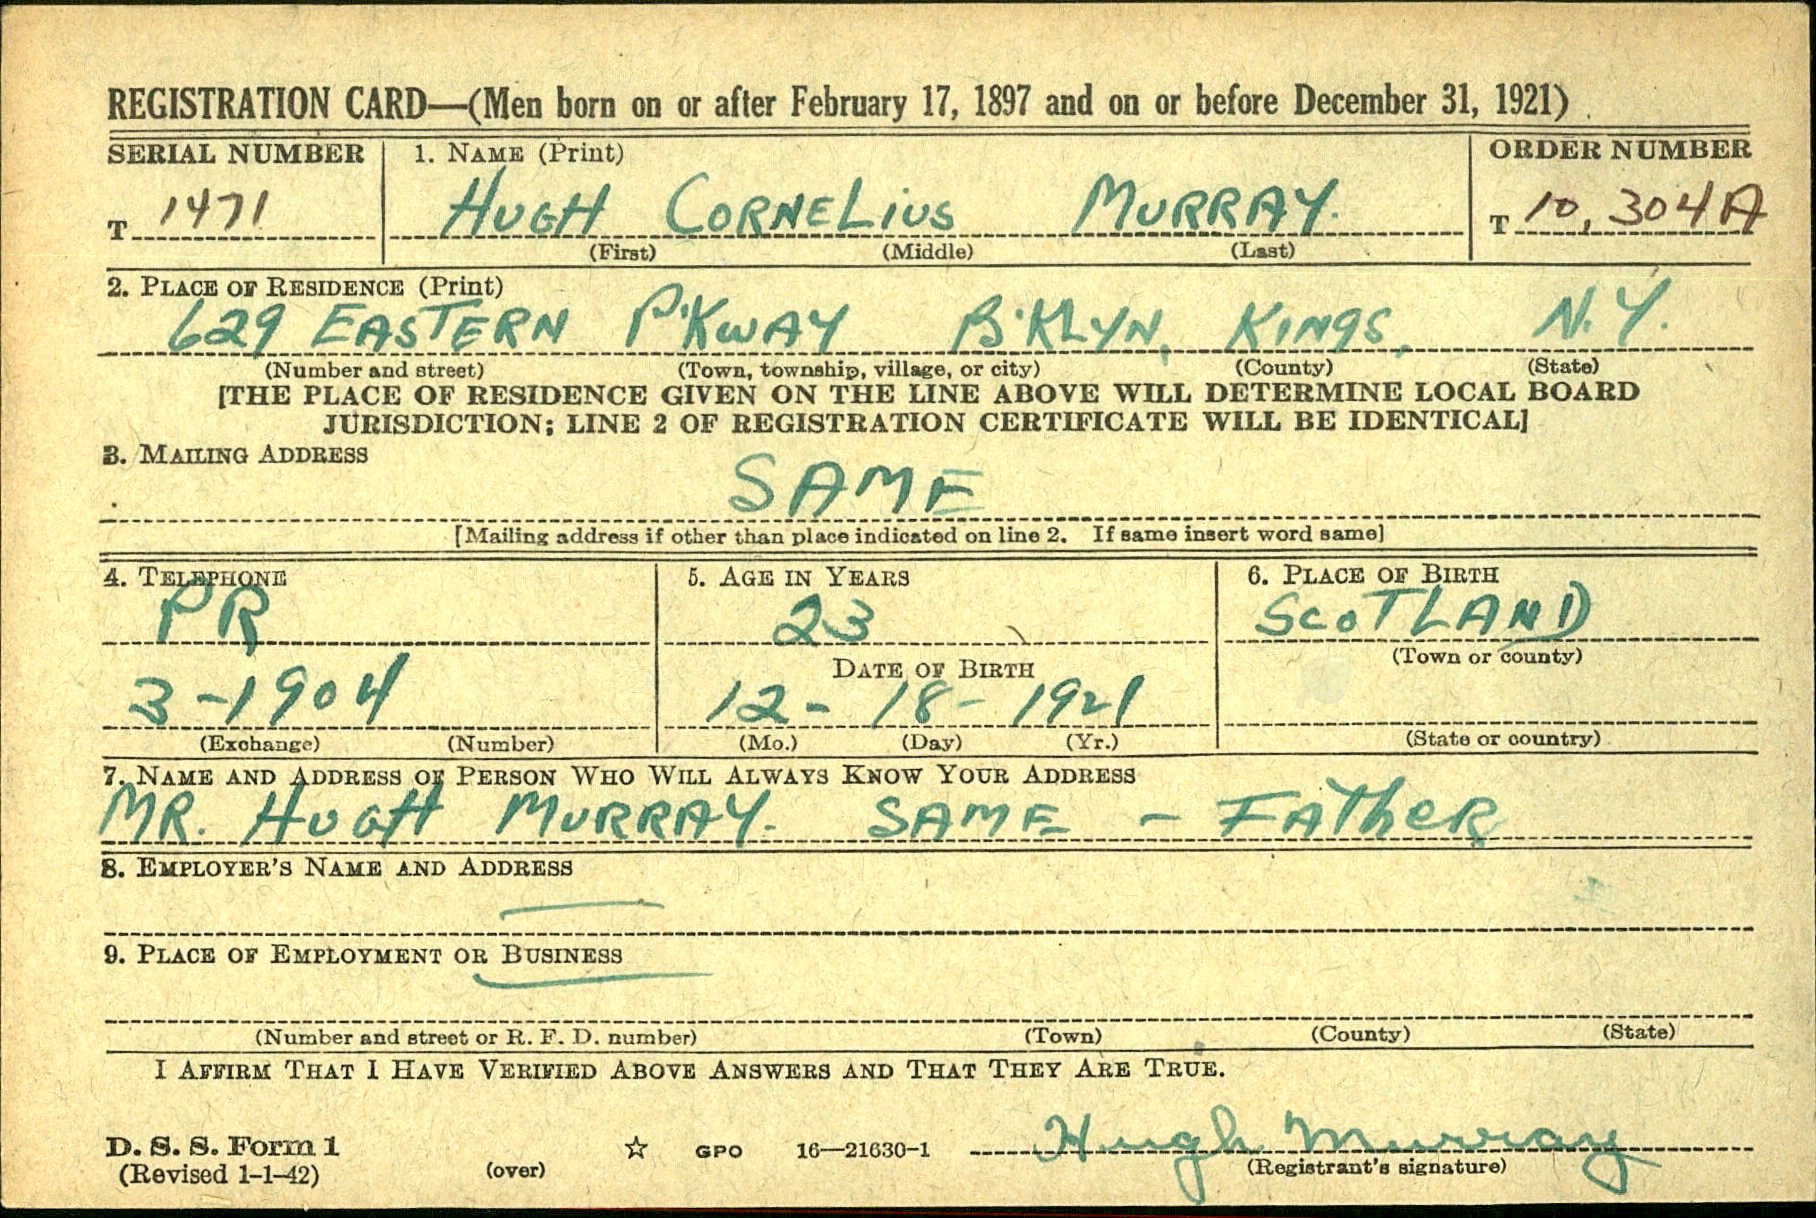 REGISTRATION CARD—(Men born on or after February 17, 1897 and on or before December 31, 1921)
SERIAL NUMBER 1. NAME (Print) ORDER NUMBER
T 1471 HUGH CORNELIUS MURRAY. T 10,304A
(First) (Middle) (Last)
2. PLACE OF RESIDENCE (Print)
629 EASTERN P'KWAY B'KLYN, KINGS, N.Y.
(Number and street) (Town, township, village, or city) (County) (State)
[THE PLACE OF RESIDENCE GIVEN ON THE LINE ABOVE WILL DETERMINE LOCAL BOARD
JURISDICTION; LINE 2 OF REGISTRATION CERTIFICATE WILL BE IDENTICAL]
3. MAILING ADDRESS
SAME
[Mailing address if other than place indicated on line 2. If same insert word same]
4. TELEPHONE 5. AGE IN YEARS 6. PLACE OF BIRTH
PR 23 SCOTLAND
(Town or county)
DATE OF BIRTH
3-1904 12-18-1921
(Exchange) (Number) (Mo.) (Day) (Yr.) (State or country)
7. NAME AND ADDRESS OF PERSON WHO WILL ALWAYS KNOW YOUR ADDRESS
MR. HUGH MURRAY. SAME - FATHER
8. EMPLOYER'S NAME AND ADDRESS
9. PLACE OF EMPLOYMENT OR BUSINESS
(Number and street or R. F. D. number) (Town) (County) (State)
I AFFIRM THAT I HAVE VERIFIED ABOVE ANSWERS AND THAT THEY ARE TRUE.
D. S. S. Form 1 ☆ GPO 16—21630-1 Hugh Murray
(Revised 1-1-42) (over) (Registrant's signature)